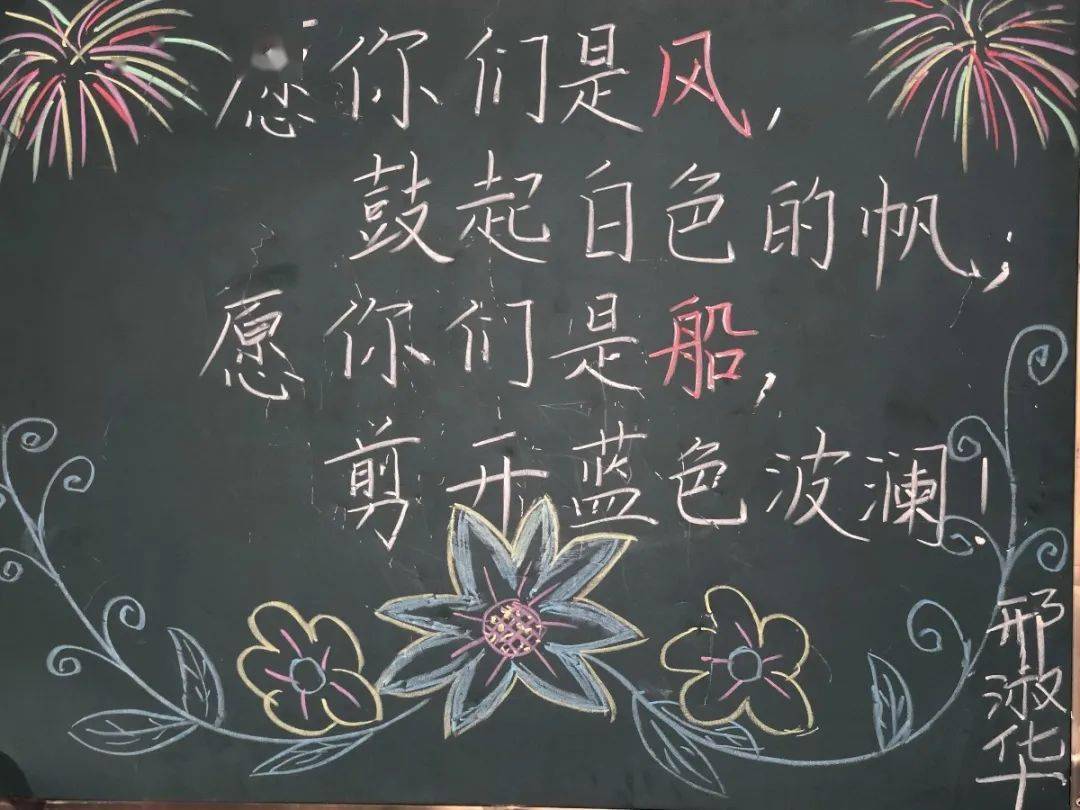 愿你们是风，
鼓起白色的帆；
愿你们是船，
剪开蓝色波澜！
邢淑华